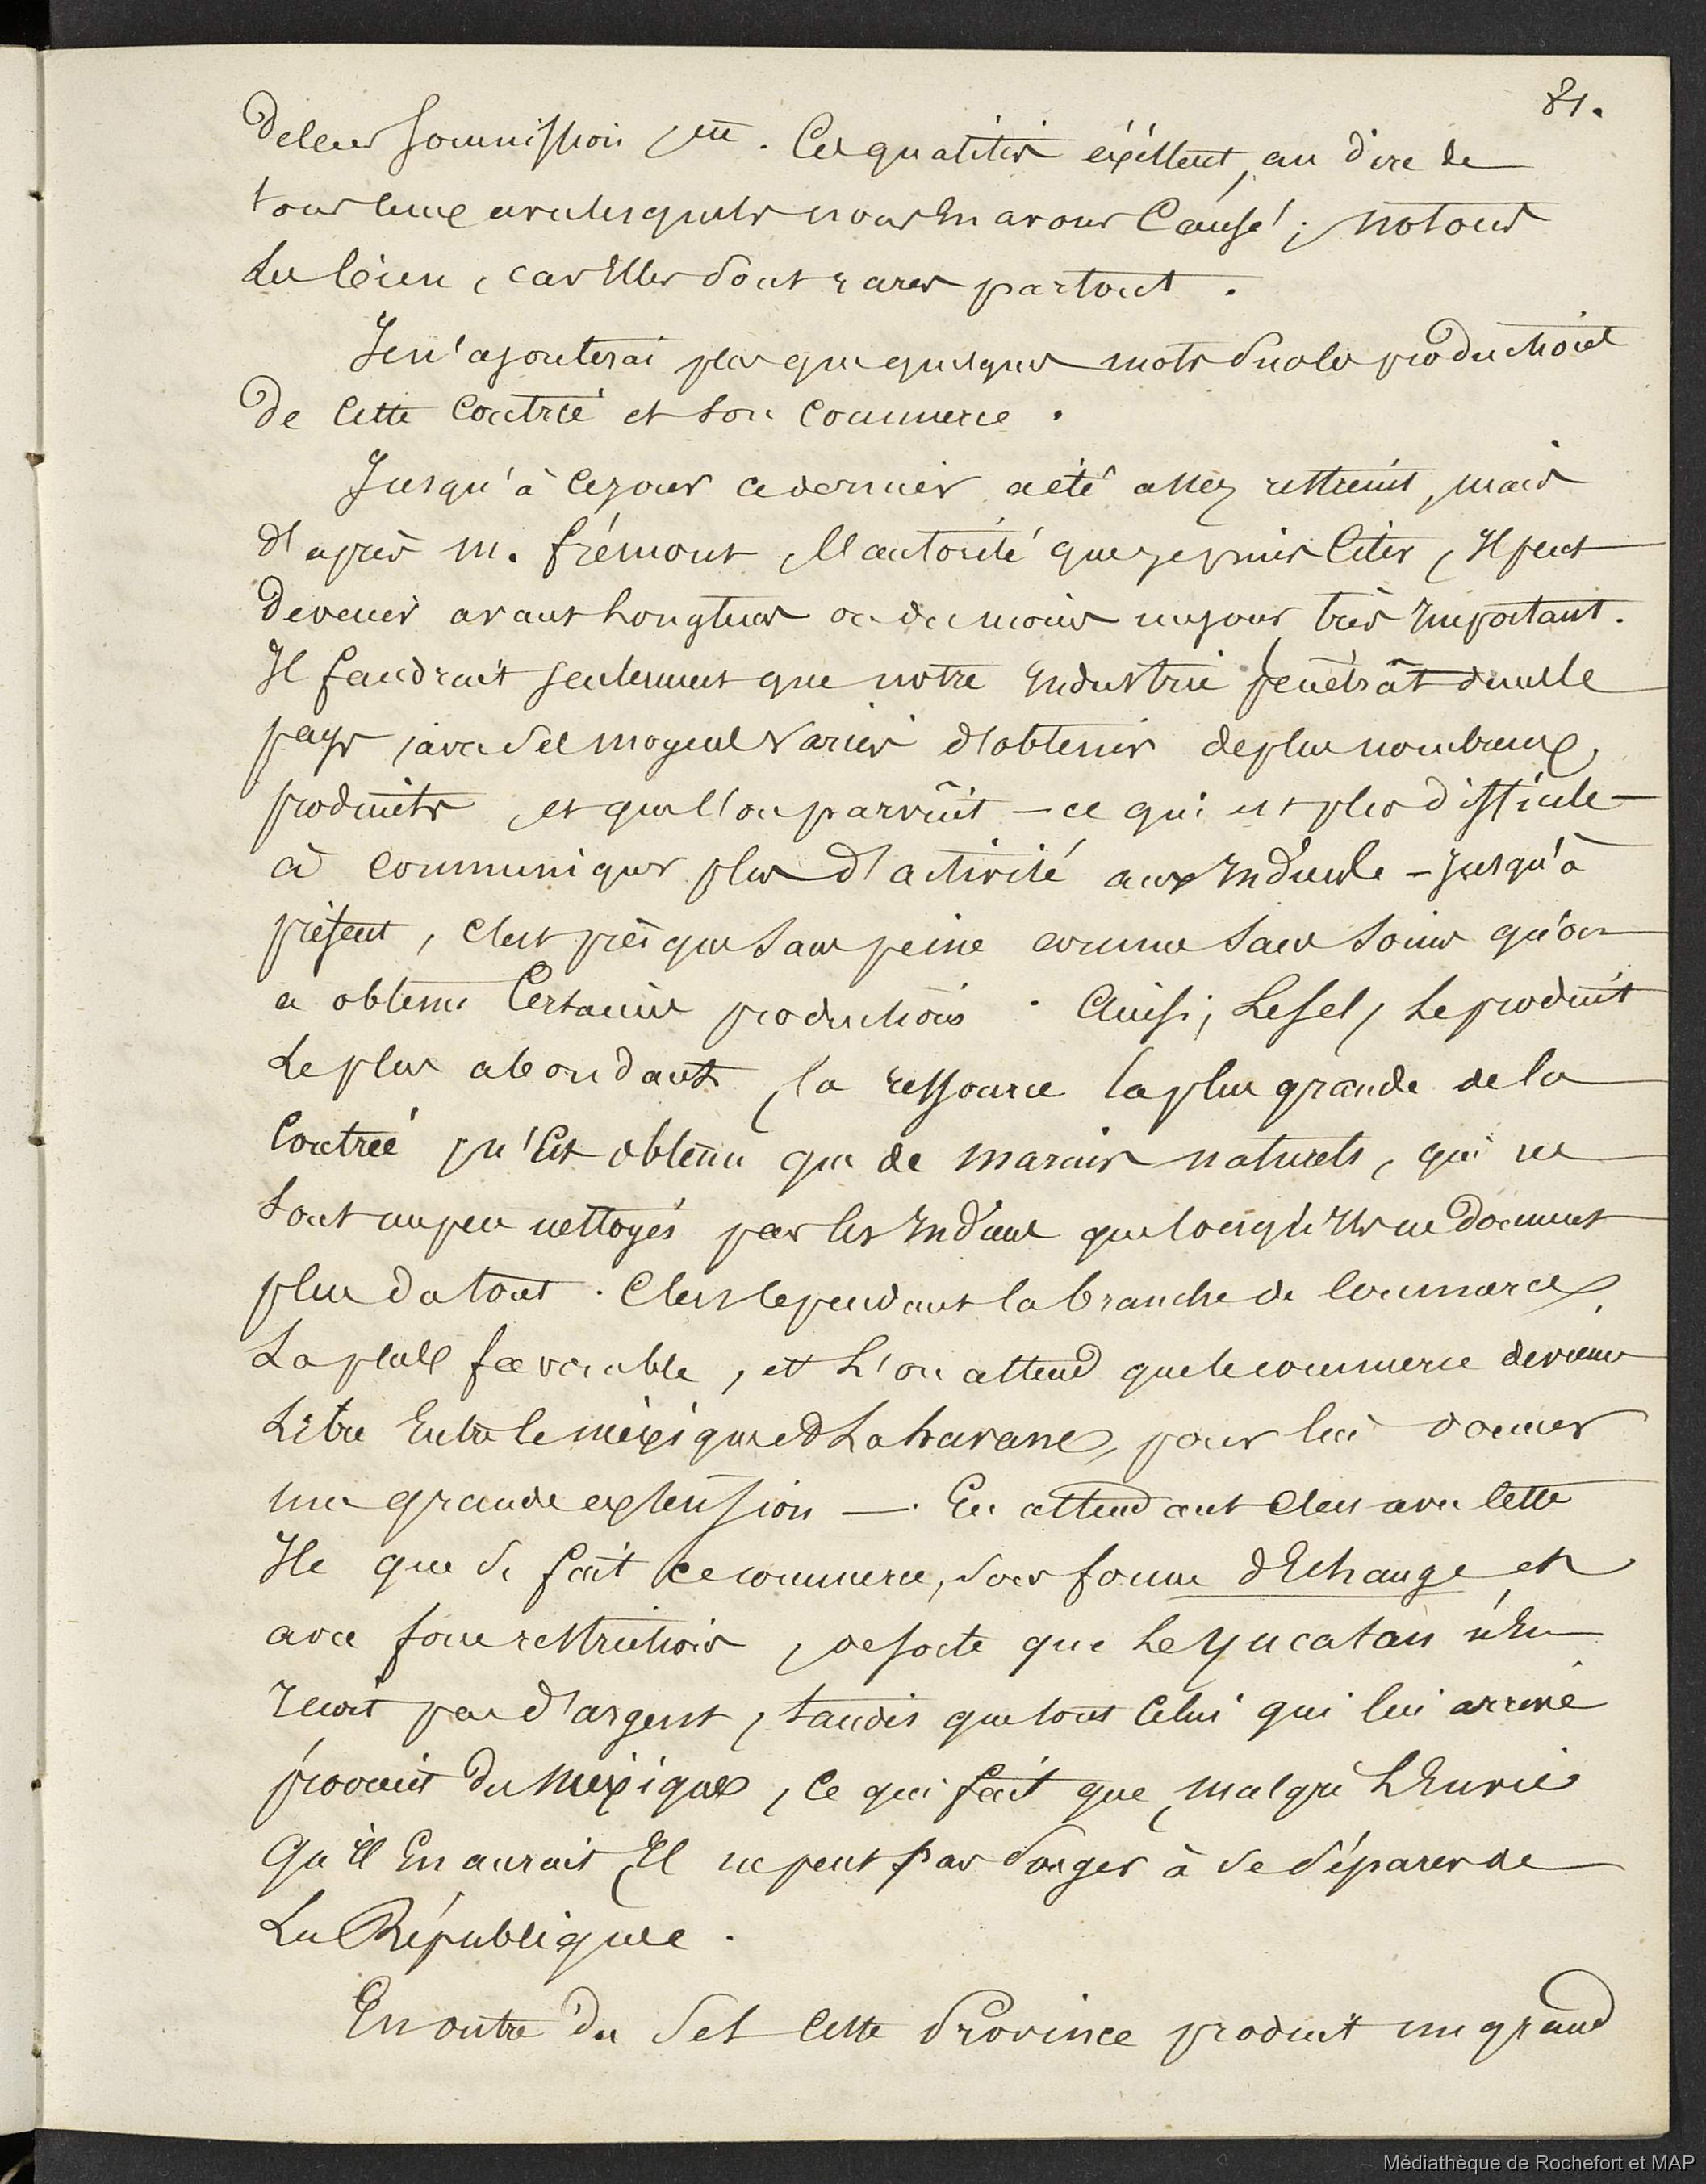 81.
de leur soumission, etc. Ces qualités existent, au dire de
tous ceux avec lesquels nous en avons causé ; notons
les bien, car Elles sont rares partout.
Je n'ajouterai plus que quelques mots sur les productions
de cette contrée et son commerce.
Jusqu'à ce jour ce dernier a été assez restreint, mais
d'après M. frémont, l'autorité que je puis citer, Il peut
devenir avant longtems ou du moins un jour, très Important.
Il faudrait seulement que notre Industrie pénétrât dans le
pays, avec ses moyens variés d'obtenir de plus nombreux
produits, et que l'on parvînt — ce qui est plus difficile —
à communiquer plus d'activité aux Indiens — Jusqu'à
présent, c'est presque sans peine comme sans soins qu'on
a obtenu certaines productions. Ainsi, le sel, le produit
le plus abondant, la ressource la plus grande de la
contrée, n'Est obtenu que de marais naturels, qui ne
sont un peu nettoyés par les Indiens que lorsqu'Ils ne donnent
plus du tout. C'est cependant la branche de commerce
La plus favorable, et l'on attend que le commerce devienne
libre Entre le méxique et La havane, pour lui donner
une grande extension —. En attendant c'est avec cette
Ile que se fait ce commerce, sous forme d'Echange et
avec fortes restrictions, de sorte que le yucatan n'En
reçoit pas d'argent, tandis que tout celui qui lui arrive
provient du Méxique, ce qui fait que, malgré l'Envie
qu'il En aurait, Il ne peut pas songer à se séparer de
La République.
En outre du sel cette Province produit un grand
Médiathèque de Rochefort et MAP